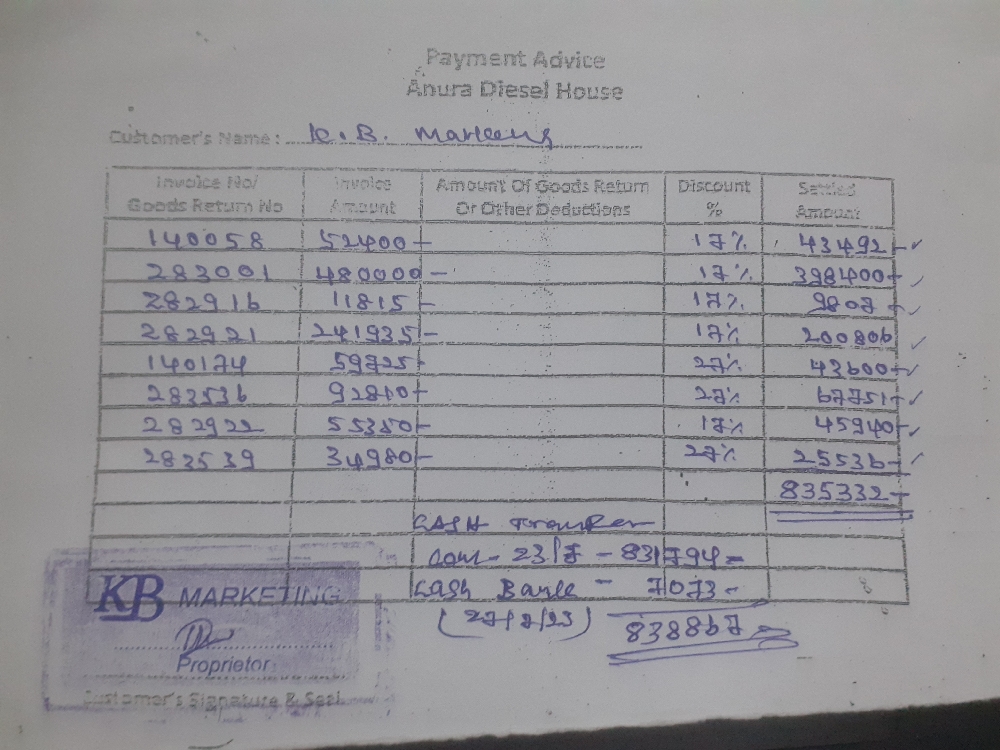 Payment Advice
Anura Diesel House
Customer's Name : K.B. Marketing
Invoice No/ Goods Return No Invoice Amount Amount Of Goods Return Or Other Deductions Discount % Settled Amount
140058 52400/- 17% 43492/- ✓
283001 480000/- 17% 398400/- ✓
282916 11815/- 17% 9807/- ✓
282921 241935/- 17% 200806 ✓
140174 59725/- 27% 43600/- ✓
283536 92810/- 27% 67751/- ✓
282922 55350/- 17% 45940/- ✓
283539 34980/- 27% 25536/- ✓
835332/-
CASH Transfer
23/7 - 831794 =
Cash - 7073 -
838867
KB MARKETING
Proprietor
Customer's Signature & Seal